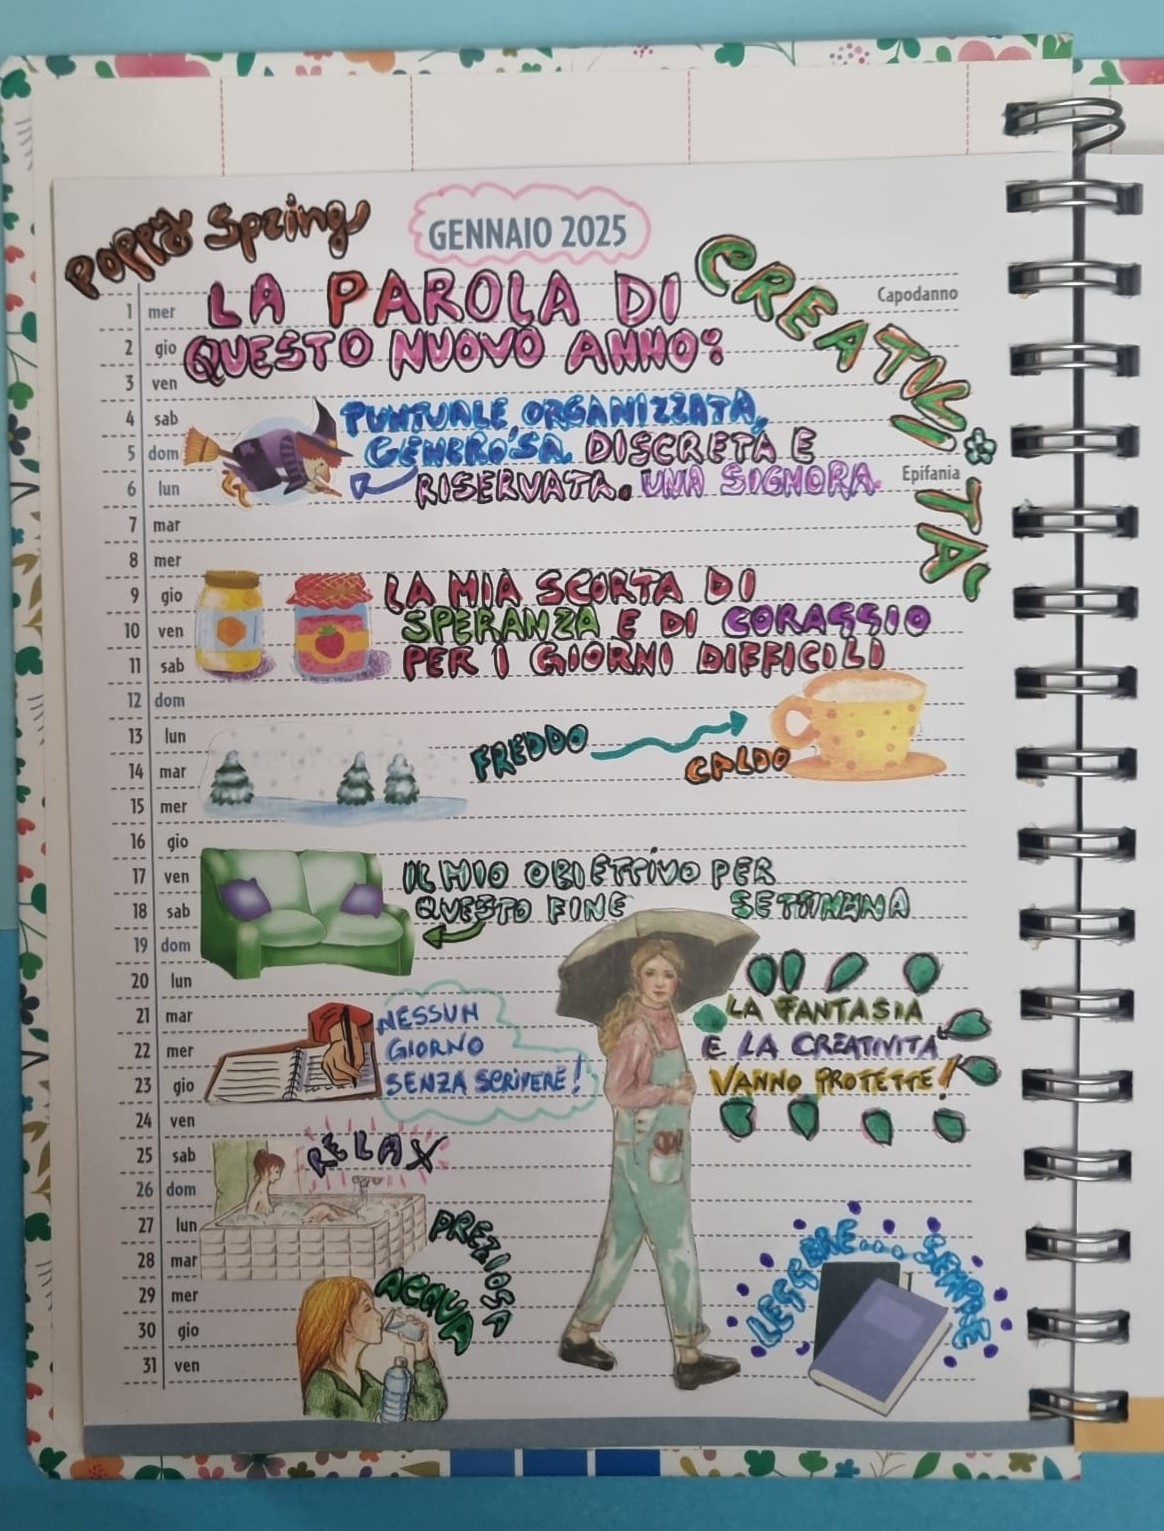 Poppy Spring
GENNAIO 2025
LA PAROLA DI
QUESTO NUOVO ANNO:
CREATIVITÀ
1 mer Capodanno
2 gio
3 ven
4 sab
PUNTUALE, ORGANIZZATA,
5 dom
GENEROSA. DISCRETA E
6 lun Epifania
RISERVATA. UNA SIGNORA.
7 mar
8 mer
9 gio
LA MIA SCORTA DI
10 ven
SPERANZA E DI CORAGGIO
11 sab
PER I GIORNI DIFFICILI
12 dom
13 lun
FREDDO
14 mar
CALDO
15 mer
16 gio
17 ven
IL MIO OBIETTIVO PER
18 sab
QUESTO FINE SETTIMANA
19 dom
20 lun
21 mar
NESSUN
LA FANTASIA
22 mer
GIORNO
E LA CREATIVITA'
23 gio
SENZA SCRIVERE!
VANNO PROTETTE!
24 ven
25 sab
RELAX
26 dom
27 lun
28 mar
29 mer
30 gio
31 ven
PREZIOSA
ACQUA
LEGGERE... SEMPRE